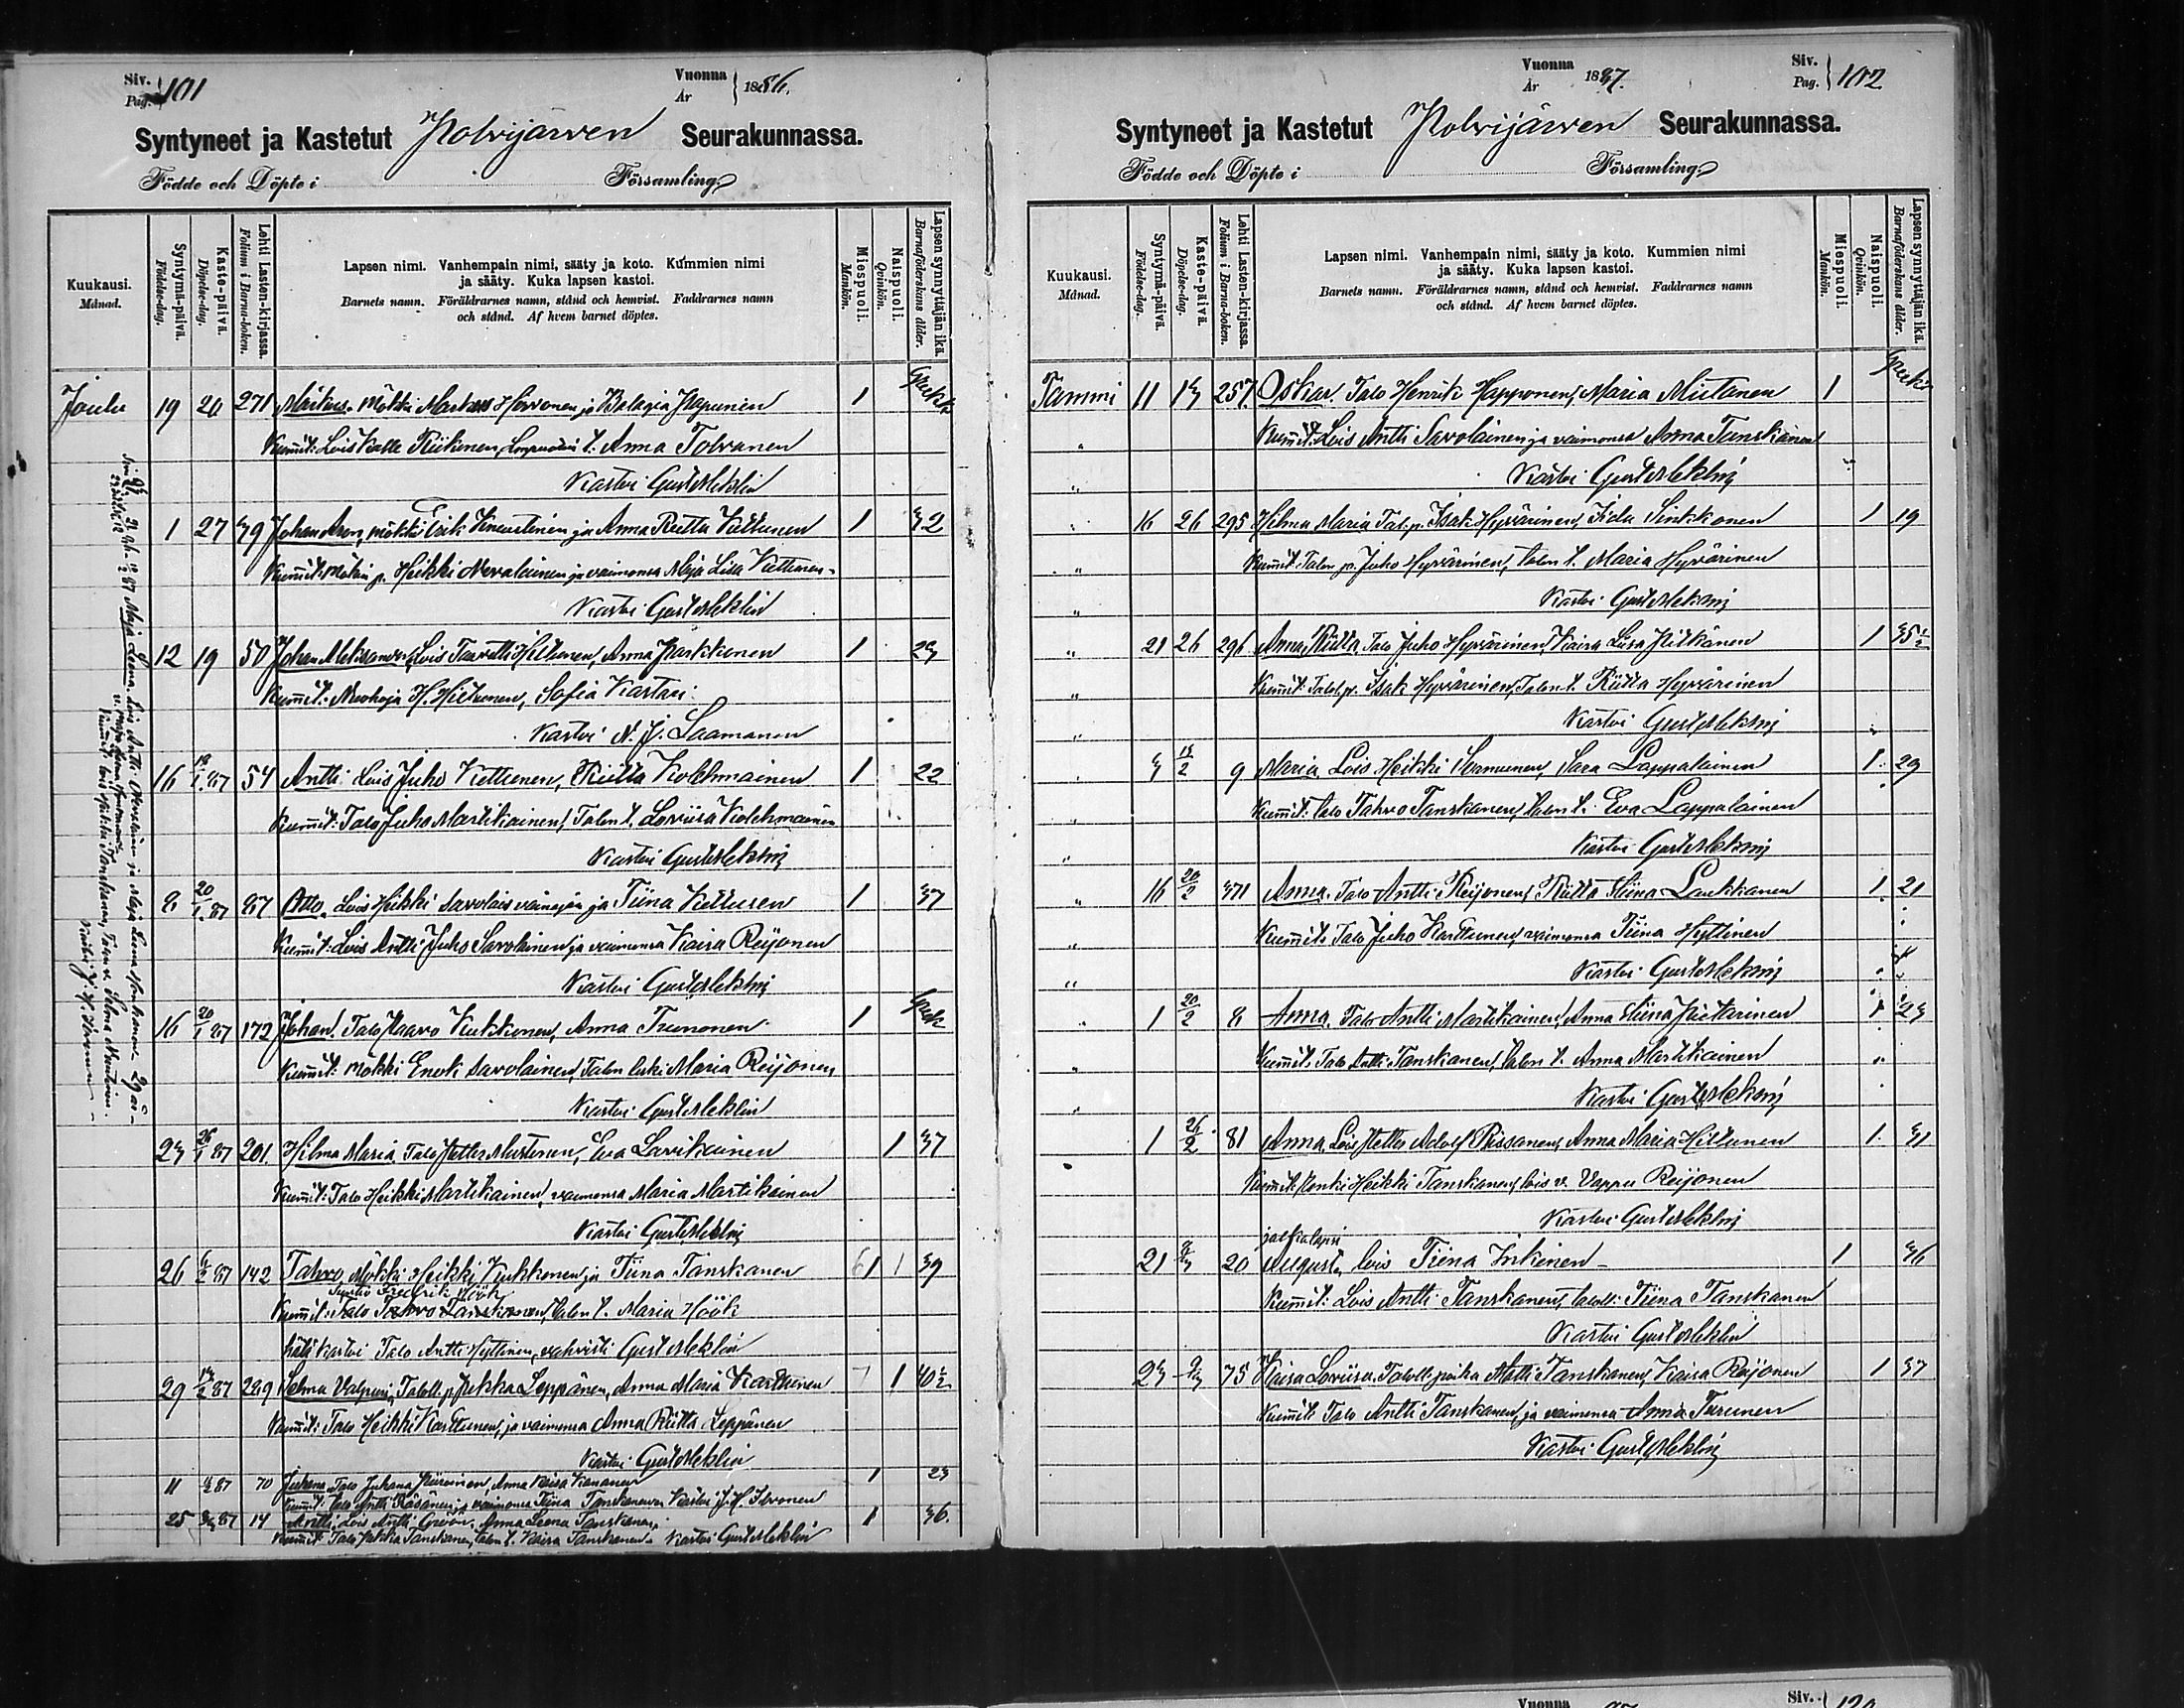 Siv.
Pag. 101
Vuonna
År
1886.
Syntyneet ja Kastetut Polvijärven Seurakunnassa.
Födde och Döpte i Församling
Kuukausi.
Månad.
Syntymä-päivä.
Födelse-dag.
Kaste-päivä.
Döpelse-dag.
Lehti Lasten-kirjassa.
Folium i Barna-boken.
Lapsen nimi. Vanhempain nimi, sääty ja koto. Kummien nimi
ja sääty. Kuka lapsen kastoi.
Barnets namn. Föräldrarnes namn, stånd och hemvist. Faddrarnes namn
och stånd. Af hvem barnet döptes.
Miespuoli.
Mankön.
Naispuoli.
Qvinkön.
Lapsen synnyttäjän ikä.
Barnaföderskans ålder.
Joulu 19 20 271 Markus. Mökki Markus Horvonen ja Palagia Papunen 1
Kummit: Lois Kalle Riikonen, t. Anna Tolvanen
Kastoi Gust Meklin
1 27 39 Johan Aron, mökki Erik Kinnunen ja Anna Riitta Kettunen 1 32
Kummit: Mökin p. Heikki Nevalainen ja vaimonsa Maja Lisa Kettunen
Kastoi Gust Meklin
12 19 50 Johan Aleksander, Lois Taavetti Hiltunen, Anna Parkkonen 1 23
Kummit: H. Hiltunen, Sofia
Kastoi N. J. Laamanen
16 18/1 87 54 Antti Lois Juho Kettunen, Riitta Kolehmainen 1 22
Kummit: Talo Juho Martikainen, Talon t. Loviisa Kolehmainen
Kastoi Gust Meklin
8 20/1 87 87 Otto, Lois Heikki Savolais vainajan ja Tiina Kettusen 1 37
Kummit: Lois Antti Juho Savolainen ja vaimonsa Kaisa Reijonen
Kastoi Gust Meklin
16 20/1 87 172 Johan. Talo Paavo Kukkonen, Anna Trunonen 1
Kummit: Mökki Enok Savolainen, Talon leski Maria Reijonen
Kastoi Gust Meklin
23 26/1 87 201. Hilma Maria. Talo Petter Mustonen, Eva Lavikainen 1 37
Kummit: Talo Heikki Martikainen, vaimonsa Maria Martikainen
Kastoi Gust Meklin
26 6/2 87 142 Tahvo, Mökki Heikki Kukkonen ja Tiina Tanskanen 1 39
Fredrik Höök
Kummit: Talo Tahvo Tanskanen, talon t. Maria Höök
hätä kastoi Talo Antti Hyttinen, vahvisti Gust Meklin
29 13/2 87 299 Selma Valpuri, Taloll. p. Pekka Leppänen, Anna Maria Karttunen 1 40 1/2
Kummit: Talo Heikki Karttunen, ja vaimonsa Anna Riitta Leppänen
Kastoi Gust Meklin
11 87 70 Juhana Talo Juhana Piironen, Anna Kaisa 1 23
Kummit: Talo Antti Räsänen ja vaimonsa Tiina Tanskanen Kastoi J. H. Ikonen
25 87 14 Antti, Lois Antti Gröön, Anna Leena Tanskanen 1 36.
Kummit: Talo Pekka Tanskanen, talon t. Kaisa Tanskanen Kastoi Gust Meklin
87 Maja Leena. Lois Antti ja Maja Leena 29
Kummit: lois Tanskanen, Talon t. Selma
Kastoi J. H. Ikonen
Vuonna
År
1887.
Siv.
Pag. 102
Syntyneet ja Kastetut Polvijärven Seurakunnassa.
Födde och Döpte i Församling
Kuukausi.
Månad.
Syntymä-päivä.
Födelse-dag.
Kaste-päivä.
Döpelse-dag.
Lehti Lasten-kirjassa.
Folium i Barna-boken.
Lapsen nimi. Vanhempain nimi, sääty ja koto. Kummien nimi
ja sääty. Kuka lapsen kastoi.
Barnets namn. Föräldrarnes namn, stånd och hemvist. Faddrarnes namn
och stånd. Af hvem barnet döptes.
Miespuoli.
Mankön.
Naispuoli.
Qvinkön.
Lapsen synnyttäjän ikä.
Barnaföderskans ålder.
Tammi 11 13 257. Oskar. Talo Henrik Happonen, Maria Miettanen 1
Kummit: Lois Antti Savolainen ja vaimonsa Anna Tanskanen
Kastoi Gust Meklin
16 26 295 Hilma Maria Tal. p. Isak Hyvärinen, Iida Sinkkonen 1 19
Kummit: Talon p. Juho Hyvärinen, talon t. Maria Hyvärinen
Kastoi Gust Meklin
21 26 296 Anna Riitta, Talo Juho Hyvärinen, Kaisa Liisa Pitkänen 1 35 1/2
Kummit: Talol. p. Isak Hyvärinen, Talon t. Riitta Hyvärinen
Kastoi Gust Meklin
3 15/2 9 Maria, Lois Heikki Sormunen, Sara Lappalainen 1 29
Kummit: Talo Tahvo Tanskanen, talon t. Eva Lappalainen
Kastoi Gust Meklin
16 20/2 371 Anna. Talo Antti Reijonen, Riitta Stiina Laukkanen 1 21
Kummit: Talo Juho Karttunen, vaimonsa Tiina Hyttinen
Kastoi Gust Meklin
1 20/2 8 Anna. Talo Antti Martikainen, Anna Stiina Pietarinen 1 23
Kummit: Talo Antti Tanskanen, talon t. Anna Martikainen
Kastoi Gust Meklin
1 26/2 81 Anna. Lois Petter Adolf Rissanen, Anna Maria Hiltunen 1 31
Kummit: Renki Heikki Tanskanen, lois v. Vappu Reijonen
Kastoi Gust Meklin
jalkalapsi
21 20 August, lois Tiina Inkinen 1 36
Kummit: Lois Antti Tanskanen, taloll: Tiina Tanskanen
Kastoi Gust Meklin
23 75 Kaisa Loviisa. Taloll. poika Matti Tanskanen, Kaisa Reijonen 1 37
Kummit: Talo Antti Tanskanen, ja vaimonsa Anna Turunen
Kastoi Gust Meklin
Vuonna
Siv.
120